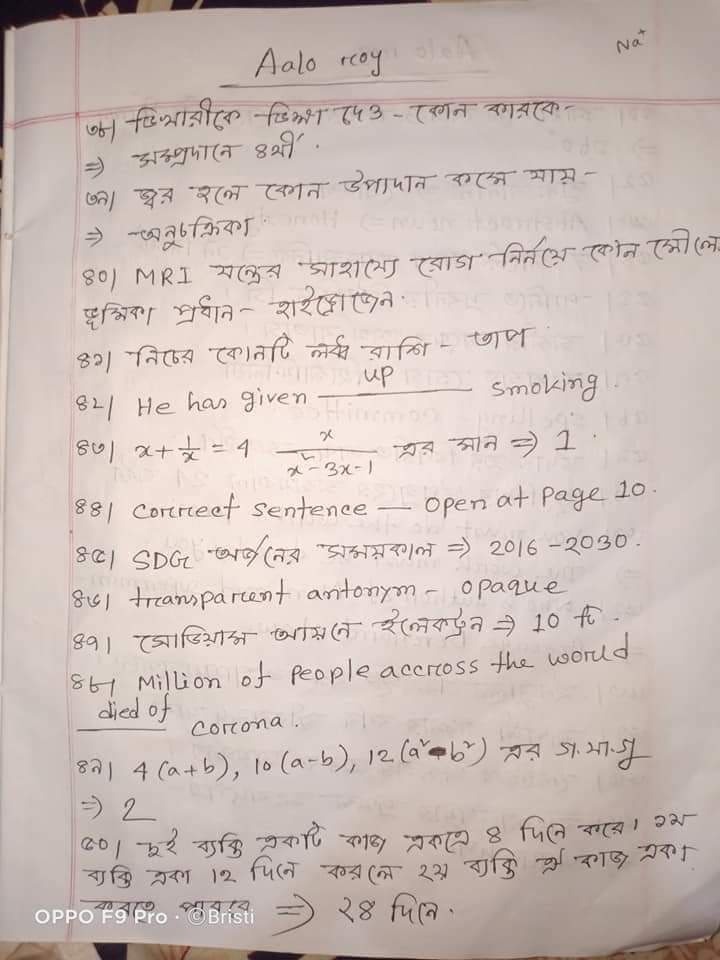 Na⁺
Aalo roy
৩৮। ভিখারীকে ভিক্ষা দেও - কোন কারকে -
⇒ সম্প্রদানে ৪র্থী.
৩৯। জ্বর হলে কোন উপাদান কমে যায় -
⇒ অনুচক্রিকা
৪০। MRI যন্ত্রের সাহায্যে রোগ নির্নয়ে কোন মৌলের
ভূমিকা প্রধান - হাইড্রোজেন.
৪১। নিচের কোনটি লব্ধ রাশি - তাপ
৪২। He has given up smoking.
৪৩। x + 1/x = 4 x/(x² - 3x - 1) এর মান ⇒ 1.
৪৪। correct sentence — open at page 10.
৪৫। SDG অর্জনের সময়কাল ⇒ 2016 - 2030.
৪৬। transparent antonym - opaque
৪৭। সোডিয়াম আয়নে ইলেকট্রন ⇒ 10 টি.
৪৮। Million of people accross the world
died of corona.
৪৯। 4(a+b), 10(a-b), 12(a²-b²) এর গ.সা.গু
⇒ 2
৫০। দুই ব্যক্তি একটি কাজ একত্রে ৪ দিনে করে। ১ম
ব্যক্তি একা 12 দিনে করলে ২য় ব্যক্তি ঐ কাজ একা
করতে পারবে ⇒ ২৪ দিনে.
OPPO F9 Pro · ©Bristi